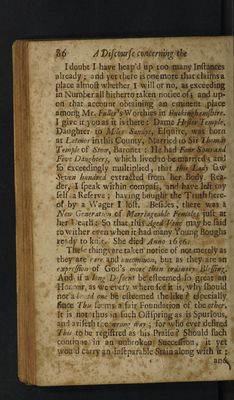 86 A Discourse concerning the
I doubt I have heap'd up too many Instances
already; and yet there is one more that claims a
place almost whether I will or no, as exceeding
in Number all hitherto taken notice of; and up-
on that account obtaining an eminent place
among Mr. Fuller's Worthies in Buckinghamshire.
I give it you as it is there: Dame Hester Temple,
Daughter to Miles Sandys, Esquire, was born
at Latmos in this County, Married to Sir Thomas
Temple of Stow, Baronet: He had Four Sons and
Five Daughters, which lived to be married; and
so exceedingly multiplied, that this Lady saw
Seven hundred extracted from her Body. Rea-
der, I speak within compass, and have left my
self a Reserve; having bought the Truth here-
of by a Wager I lost. Besides, there was a
New Generation of Marriageable Females just at
her Death. So that this Aged Vine may be said
to wither even when it had many Young Boughs
ready to knit. She died Anno 1656.
These things are taken notice of not merely as
they are rare and uncommon, but as they are an
expression of God's more then ordinary Blessing.
And if a long Descent be esteemed so great an
Honour, as we every where see it is, why should
not a broad one be esteemed the like? especially
since This seems a fair Foundation of the other.
It is not thus in such Offspring as is Spurious,
and ariseth the wrong way; for who ever desired
This to be registred as his Praise? Should such
continue in an unbroken Succession, it yet
wou'd carry an inseparable Stain along with it;
and